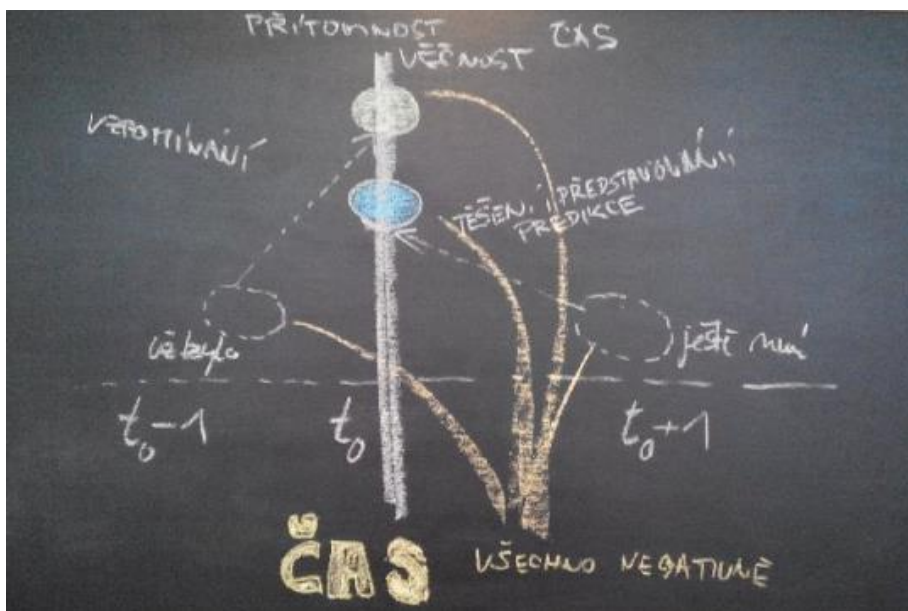 PŘÍTOMNOST
VĚČNOST
ČAS
VZPOMÍNÁNÍ
TĚŠENÍ PŘEDSTAVOVÁNÍ
PREDIKCE
už bylo
ještě není
t₀-1
t₀
t₀+1
ČAS
VŠECHNO NEGATIVNĚ